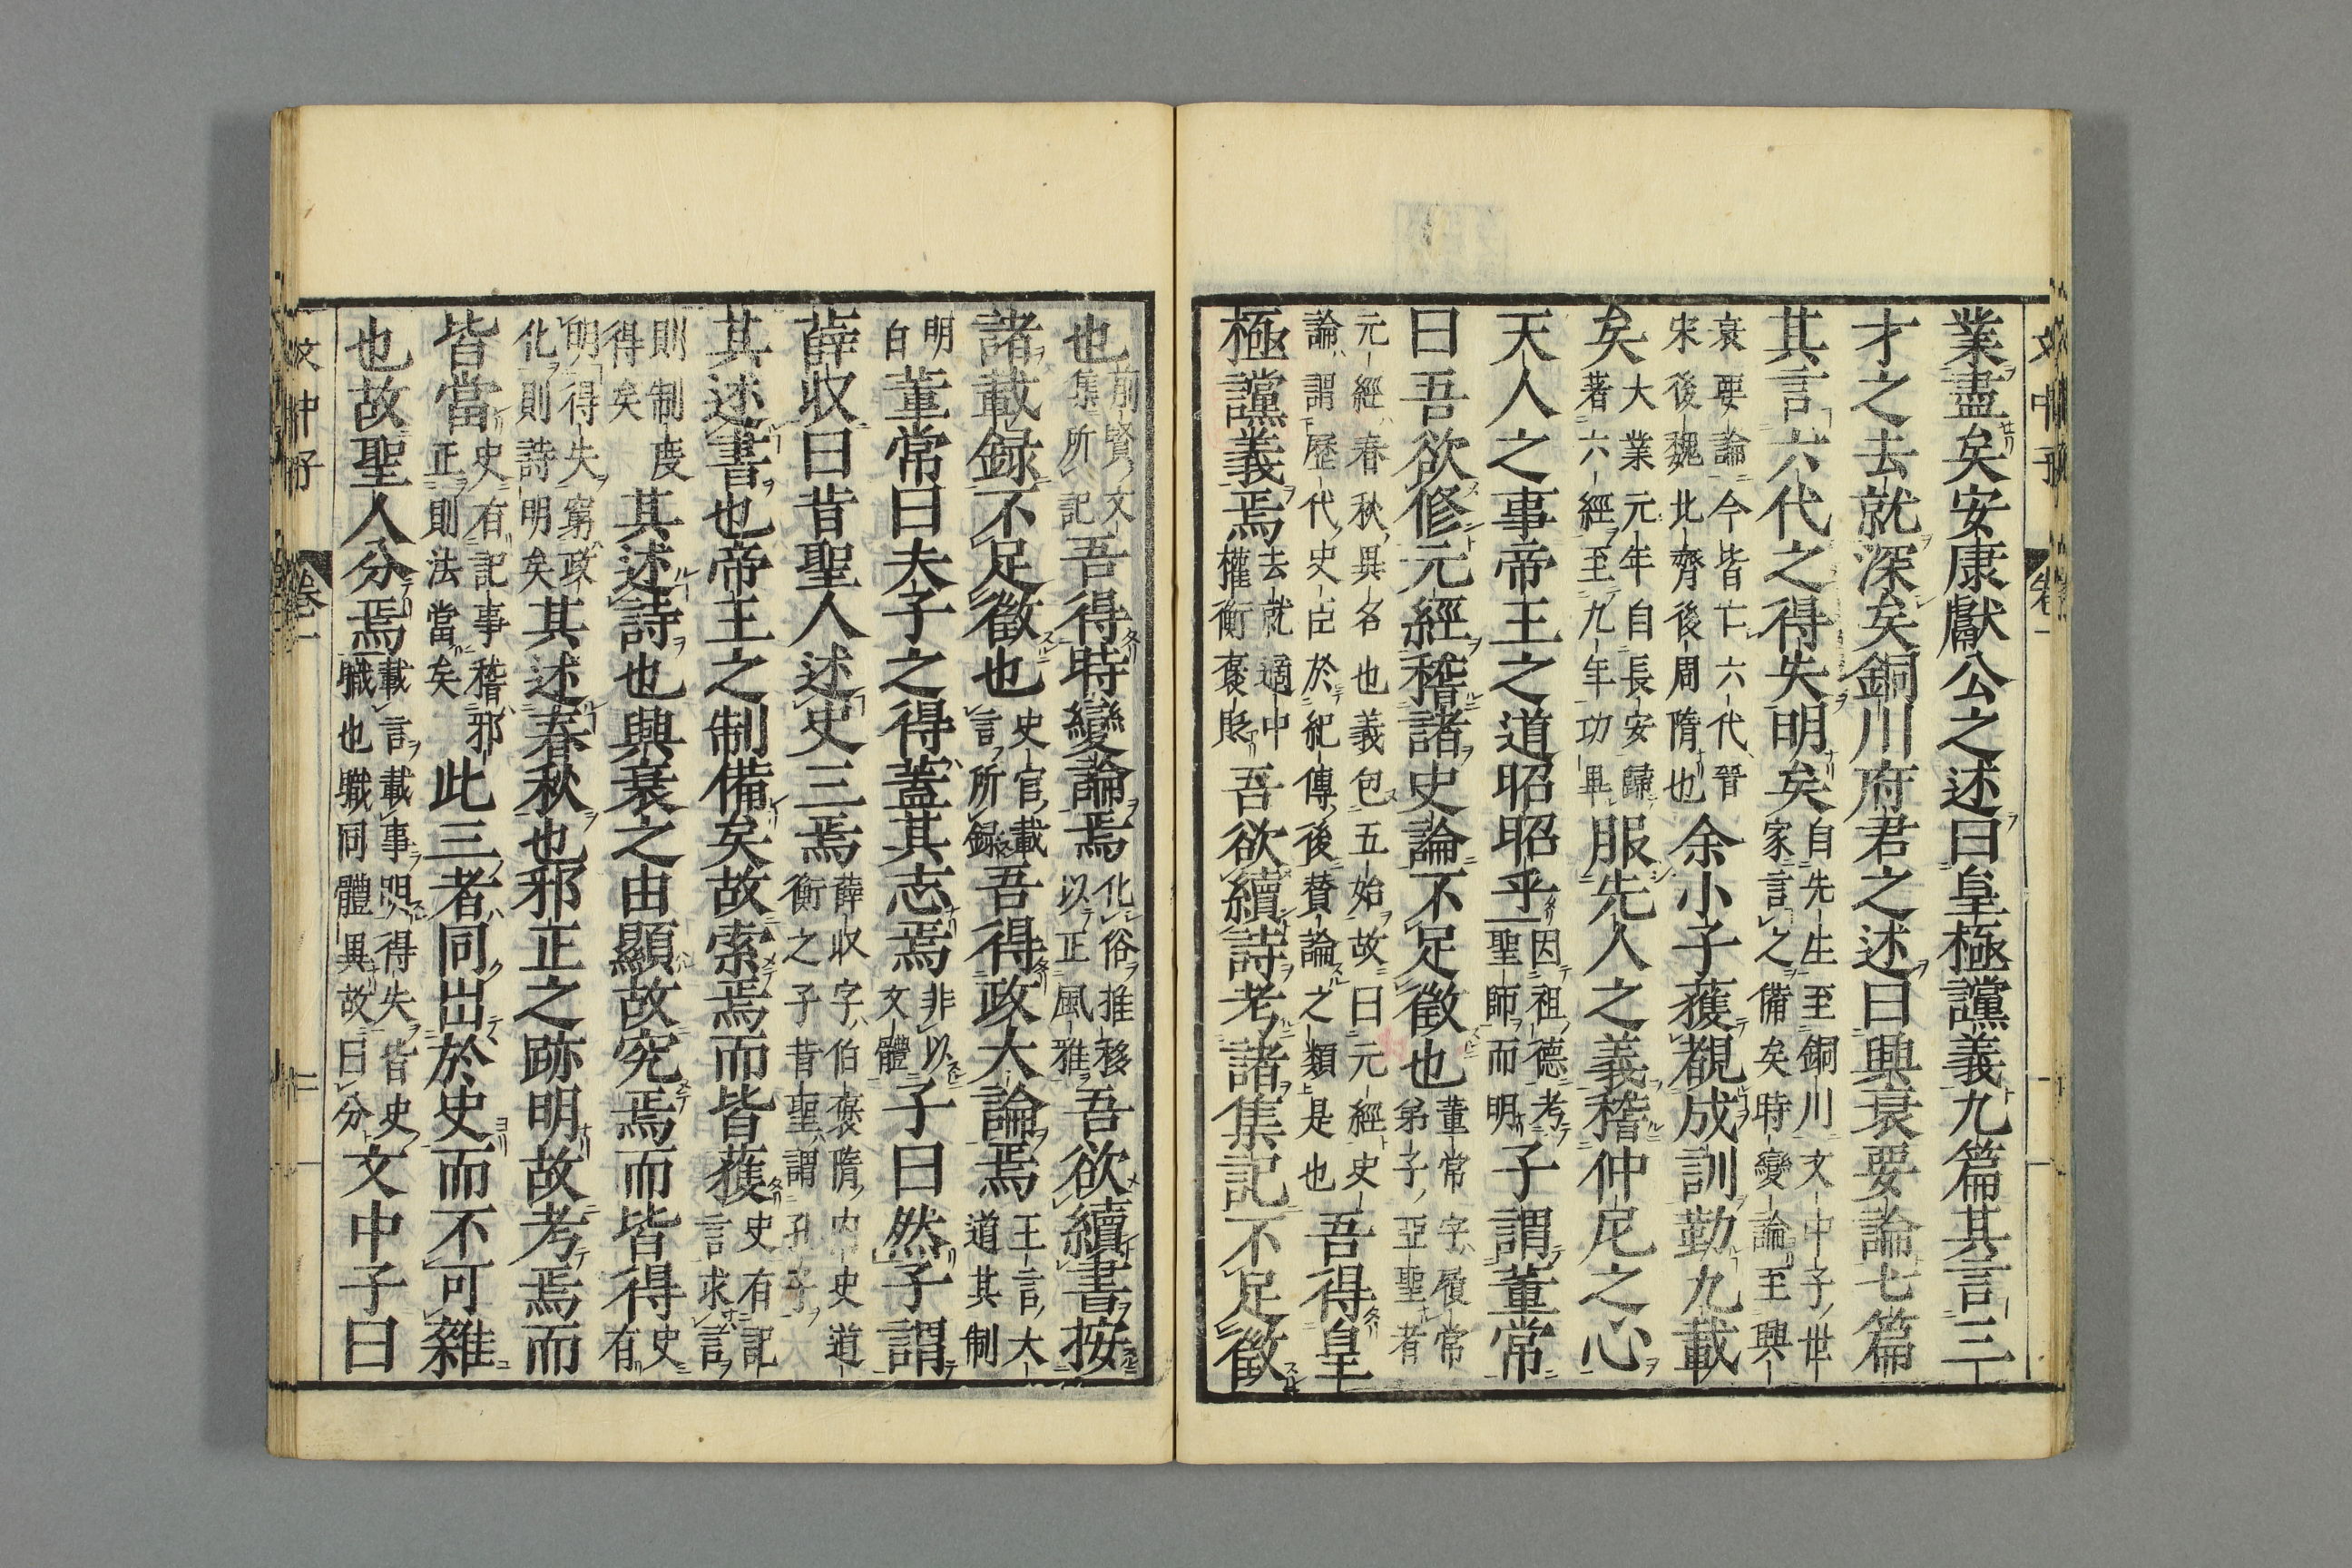 業盡矣安康獻公之述曰皇極讜義九篇其言三
才之去就深矣銅川府君之述曰興衰要論七篇
其言六代之得失明矣自先生至銅川文中子世家言之備矣時變論至興
衰要論今皆亡六代晉宋後魏北齊後周隋也余小子獲覩成訓勤九載
矣大業元年自長安歸著六經至九年功畢服先人之義稽仲尼之心
天人之事帝王之道昭昭乎因祖德考聖師而明子謂董常
曰吾欲修元經稽諸史論不足徵也董常字履常弟子亞聖者
元經春秋異名也義包五始故曰元經史論謂歷代史臣於紀傳後賛論之類是也吾得皇
極讜義焉去就適中權衡襃貶吾欲續詩考諸集記不足徵
也前賢文集所記吾得時變論焉化俗推移以正風雅吾欲續書按
諸載録不足徵也史官載言所録吾得政大論焉王言大道其制
明白董常曰夫子之得蓋其志焉非以文體子曰然子謂
薛収曰昔聖人述史三焉薛収字伯襃隋内史道衡之子昔聖謂孔子
其述書也帝王之制備矣故索焉而皆獲史有記言求言
則制度得矣其述詩也興衰之由顯故究焉而皆得史有
明得失窮政化則詩明矣其述春秋也邪正之跡明故考焉而
皆當史有記事稽邪正則法當矣此三者同出於史而不可雜
也故聖人分焉載言載事明得失皆史職也職同體異故曰分文中子曰
文中子 卷一 二